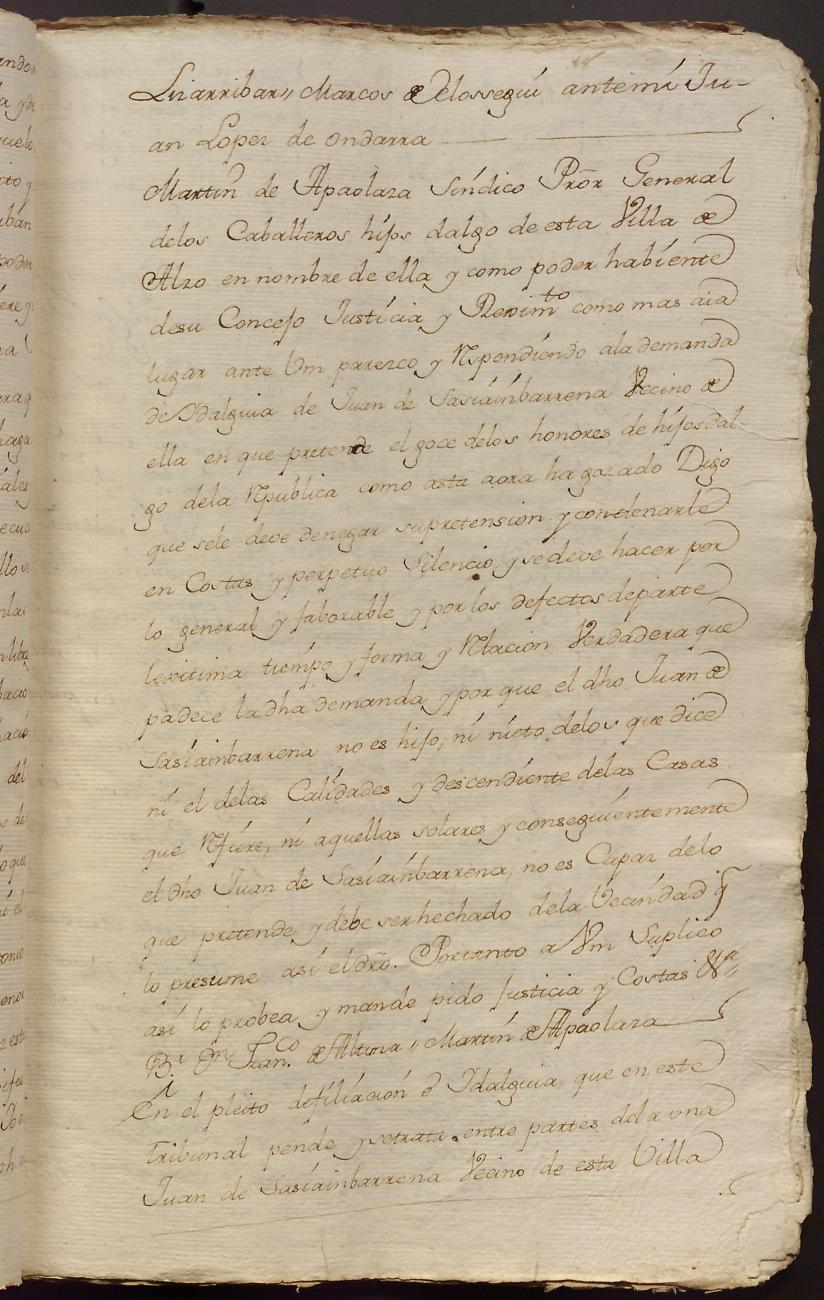 Lizarribar,, Marcos de Olossegui antemi Ju-
an Lopez de Ondarra
Martin de Apaolaza Síndico Prõr General
delos Caballeros híjos dalgo de esta Villa de
Alzo en nombre de ella y como poder habíente
desu Concejo Justícia y Rexim.to como mas aia
lugar ante Vm parezco y Rspondíendo ala demanda
de Ydalguia de Juan de Sasíaínbarrena Vecino de
ella en que pretende el goce delos honores de híjosdal-
go dela Rpublica como asta aora ha gozado Digo
que sele deve denegar supretension y condenarle
en Costas y perpetuo Silencio y sedeve hacer por
lo general y faborable y por los defectos departe
lexitima tiempo y forma y Rlacion Verdadera que
padece la dha demanda y por que el dho Juan de
Sasíainbarrena no es hijo, ní nieto delos que dice
ní el delas Calídades y descendíente delas Casas
que Rfíere, ní aquellas solares y conseguíentemente
el dho Juan de Sasíaínbarrena, no es Capaz delo
que pretende y debe ser hechado dela Vecíndad q̃
lo presume así el drõ. Portanto a Vm Suplico
así lo probea y mande pido Justicia y Costas &.a,,
B.r Dn Fran.co de Altuna,, Martín de Apaolaza
En el pleito defiliacion e Idalguia, que en este
Tribunal pende y setrata entre partes dela vna
Juan de Sasíainbarrena Vecino de esta Villa